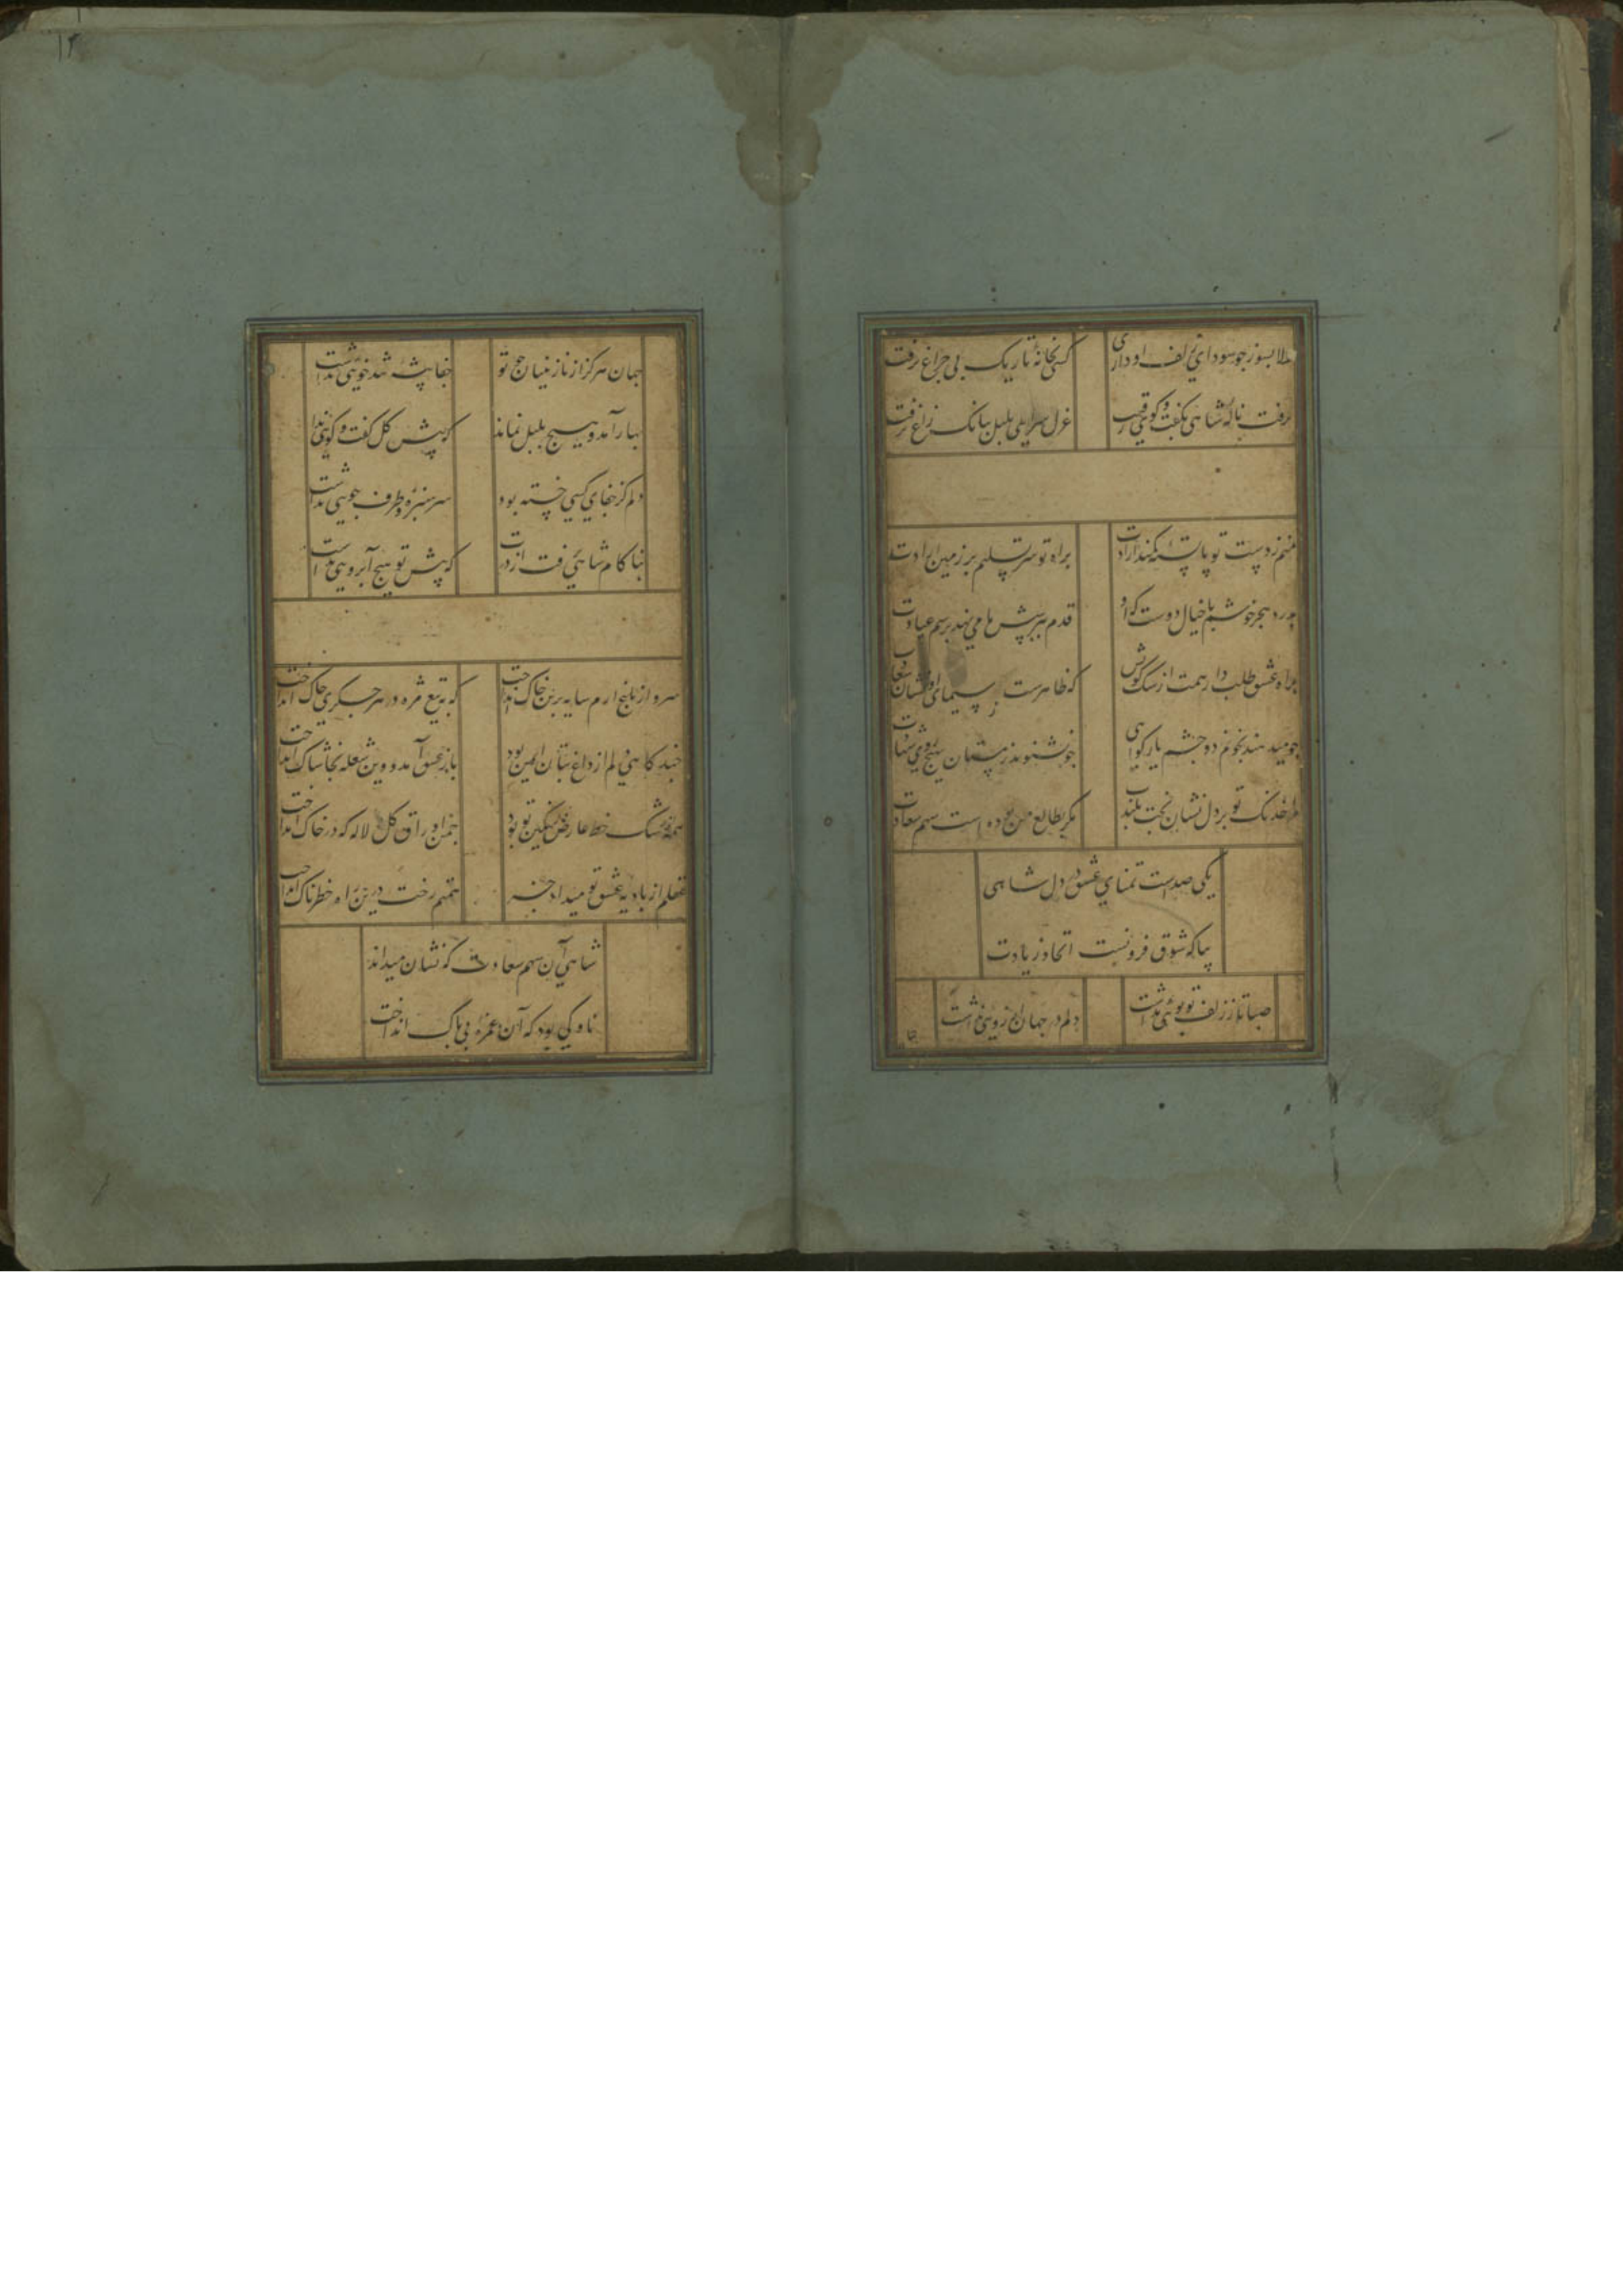 دلا بسوز چو سودای زلف او داری
که کس بخانهٔ تاریک بی چراغ نرفت
نرفت نالهٔ شاهی بگفت و گوی رقیب
غزل سرایی بلبل ببانک زاغ نرفت
منم ز دست تو پا بستهٔ کمند ارادت
براه تو سر تسلیم بر زمین ارادت
بدرد هجر خوشم با خیال دوست که او
قدم بپرسش ما می نهد برسم عیادت
براه عشق طلب دار همت از سک کویش
که ظاهرست ز سیمای او نشان
چو میدهند بخونم دو چشم یار کواهی
چو نشنوند ز مستان بهیچ روی شهادت
مرا خدنک تو بر دل نشان بخت بلند
مکر بطالع من بوده است سهم سعادت
یکی صدست تمنای عشق در دل شاهی
بیا که شوق فزونست و اتحاد زیادت
صبا تا ز زلف تو بویی نداشت
دلم در جهان آرزویی نداشت
جهان هرکز از نازنینان چو تو
جفا پیشهٔ تندخویی نداشت
بهار آمد و هیچ بلبل نماند
که پیش کل کفت و کویی نداشت
دلم کز جفای کسی خسته بود
سر سبزه و طرف جویی نداشت
بناکام شاهی رفت از درت
که پیش تو هیچ آبرویی نداشت
سرو از باغ ارم سایه برین خاک انداخت
که به تیغ مژه در هر جکری چاک انداخت
چند کاهی دلم از داغ بتان ایمن بود
باز عشق آمد و وین شعله بخاشاک انداخت
همه از رشک خط عارض رنکین تو بود
چمن اوراق کل و لاله که در خاک انداخت
عقلم از بادیهٔ عشق تو میداد خبر
هتم رخت درین راه خطرناک انداخت
شاهی آن سهم سعادت که نشان میدادند
ناوکی بود که آن غمزهٔ بی باک انداخت